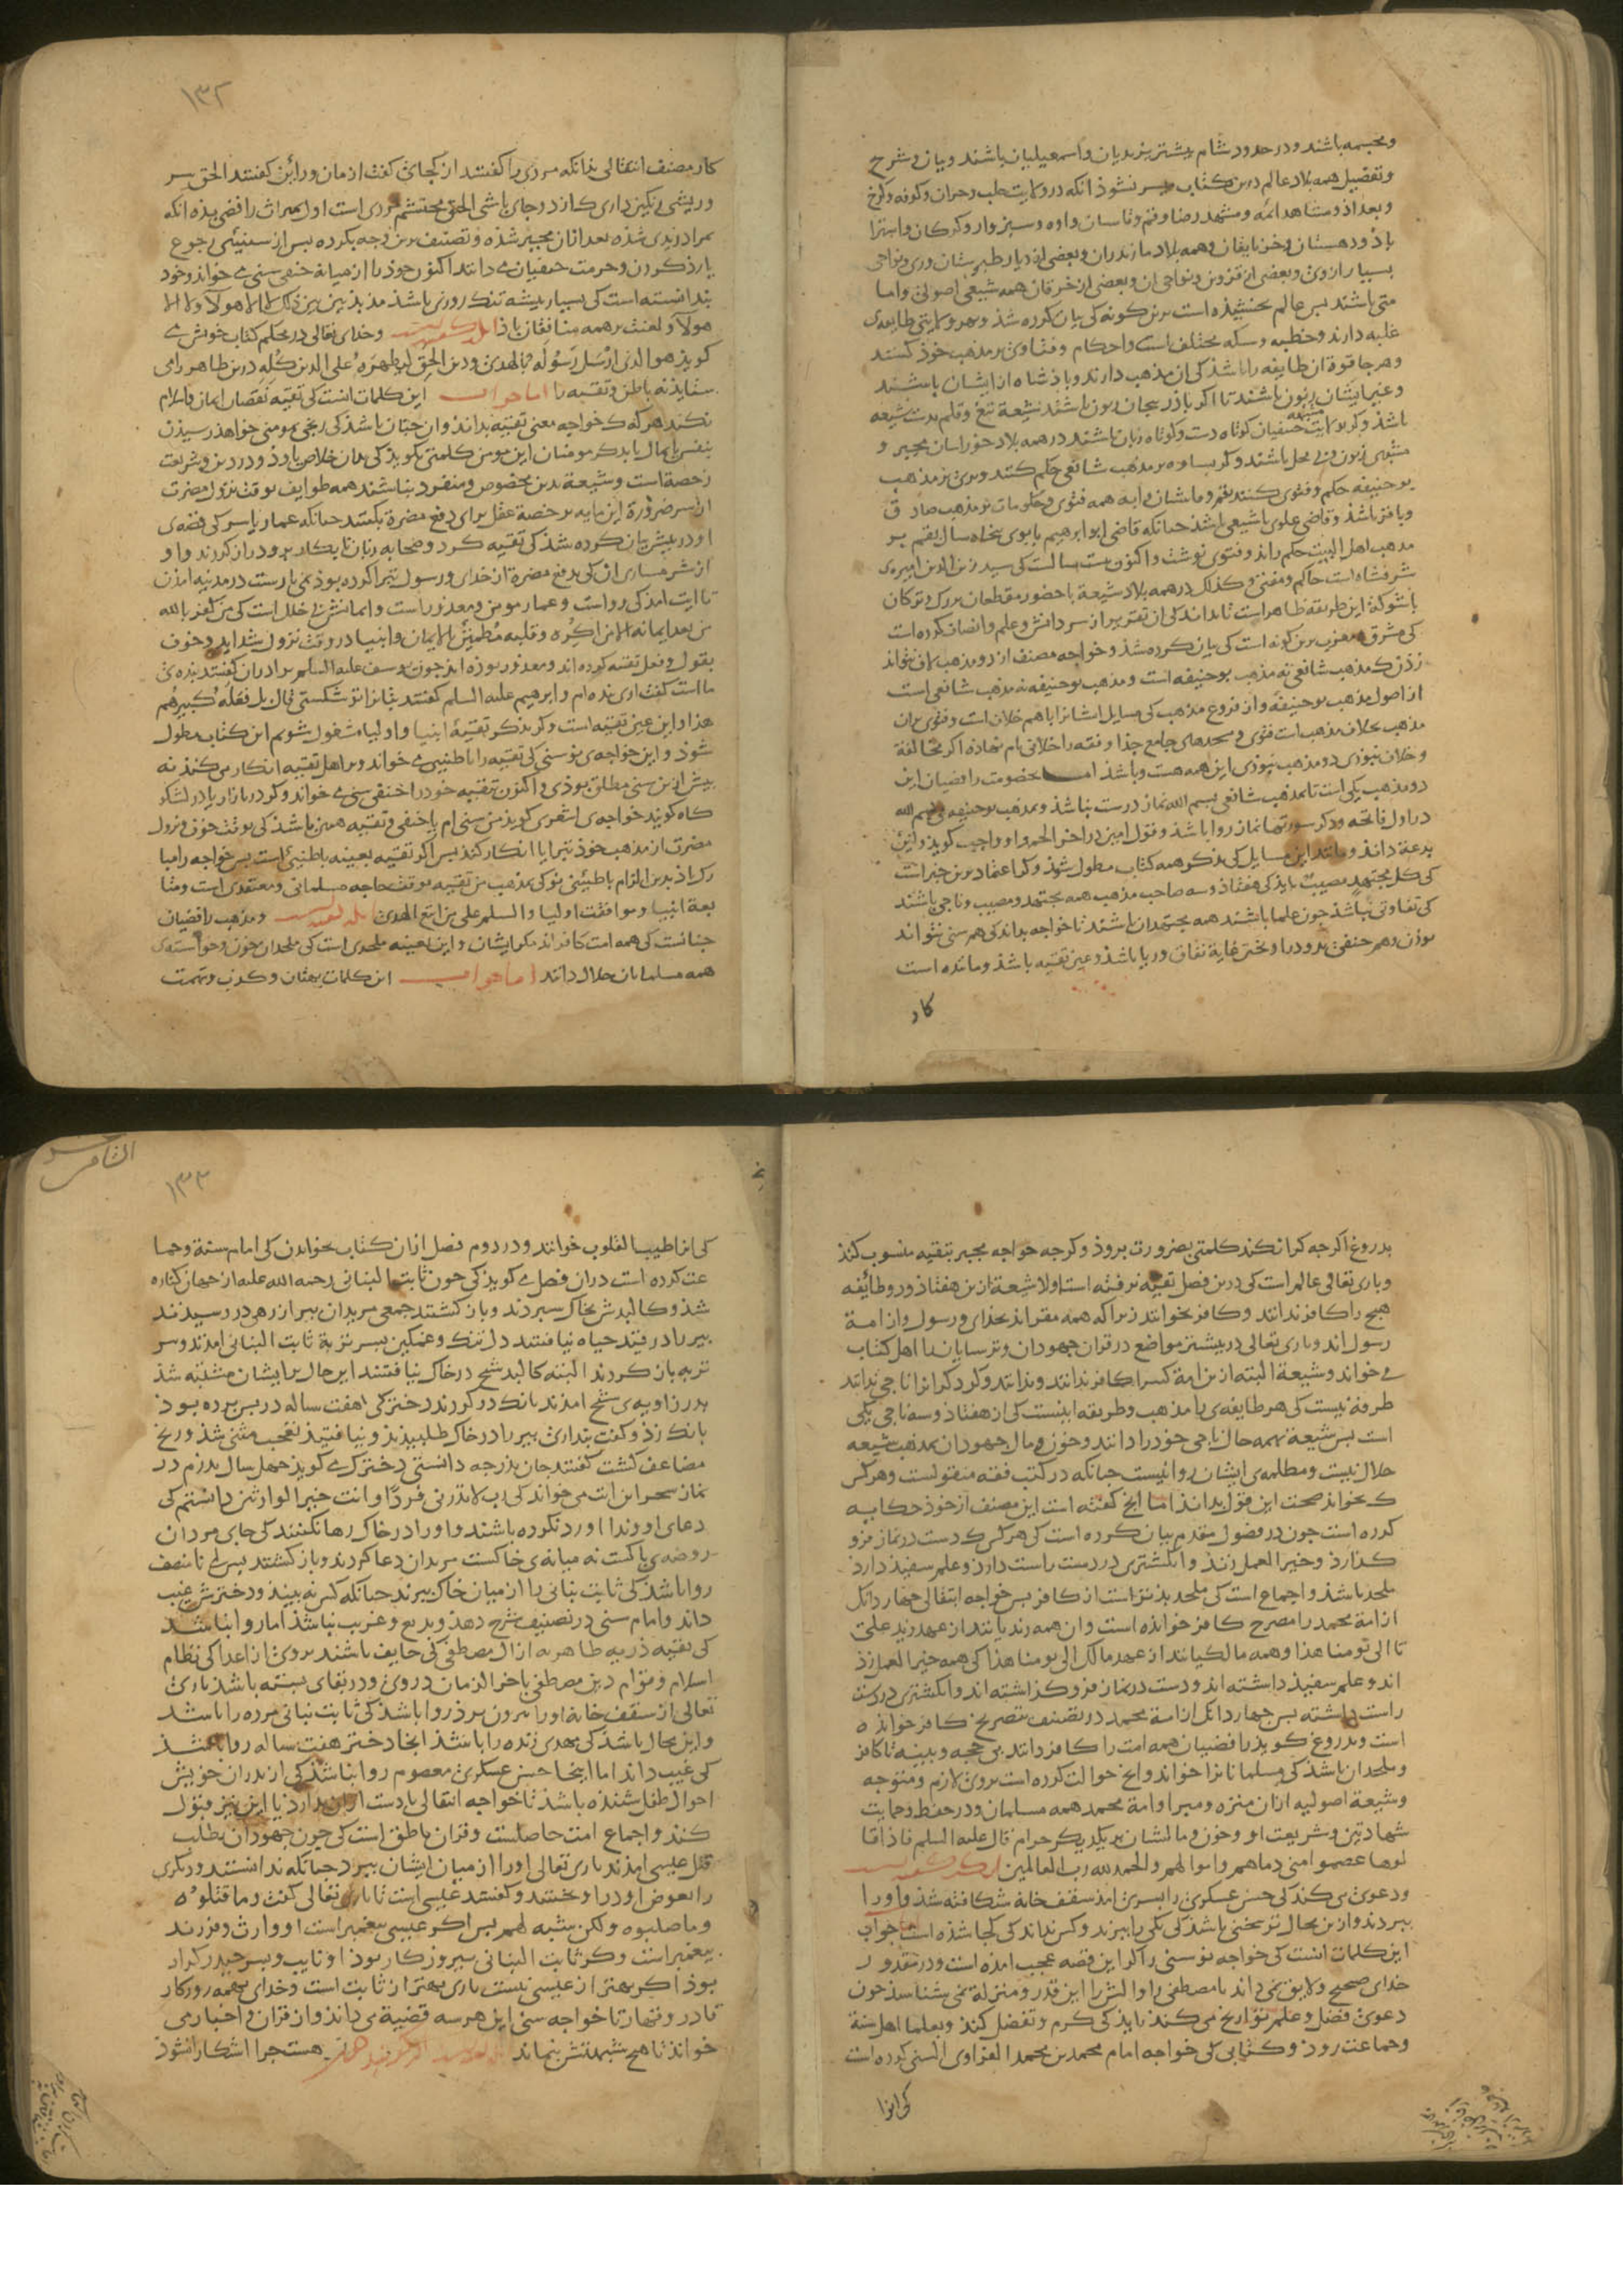 ومجسمه باشند و در حدود شام بیشتر یزیدیان و اسمعیلیان باشند و بیان و شرح
و تفصیل همه بلاد عالم درین کتاب میسر نشوذ انکه در ولایت حلب و حران و کوفه و کرخ
و بغداذ و مشاهد ائمه و مشهد رضا و قم و قاسان و اوه و سبزوار و کرکان و استرا
باذ و دهستان و جربایقان و همه بلاد مازندران و بعضی از دیار طبرستان و ری و نواحی
بسیار از وی و بعضی از قزوین و نواحی ان و بعضی از خرقان همه شیعی اصولی و اما
متی باشند بس عالم بخشیذه است برین کونه کی بیان کرده شذ و بهر ولایتی طایفه‌ی
غلبه دارند و خطبه و سکه مختلف است و احکام و فتاوی بر مذهب خوذ کنند
و هر جا قوة ان طایفه را باشذ کی ان مذهب دارند و باذشاه از ایشان باشند
و غیر ایشان زبون باشند تا اکر باذربیجان زبون باشند شیعة تیغ و قلم بدست شیعه
باشذ و کر بولایت حنفیان کوتاه دست و کوتاه زبان باشند در همه بلاد خوراسان مجبر و
مشبهی زبون و بی محل باشند و کر بساوه بر مذهب شافعی حکم کنند و بری بر مذهب
بوحنیفه حکم و فتوی کنند بقم و قاشان و آبه همه فتوی و حکومات بر مذهب صادق
و باقر باشذ و قاضی علوی یا شیعی باشذ جنانکه قاضی ابو ابرهیم بابوی بنجاه سال بقم بر
مذهب اهل البیت حکم راند و فتوی نوشت و اکنون بیست سالست کی سید زین الدین امیره‌ی
شرفشاه است حاکم و مفتی و کذلک در همه بلاد شیعة با حضور مقطعان بزرک و ترکان
با شوکة این طریقه ظاهر است تا بداند کی ان تقریر از سر دانش و علم و انصاف کرده است
کی مشرق و مغرب برین کونه است کی بیان کرده شذ و خواجه مصنف از دو مذهب لاف نتواند
زذن ک مذهب شافعی نه مذهب بوحنیفه است و مذهب بوحنیفه نه مذهب شافعی است
از اصول مذهب بوحنیفه و از فروع مذهب کی مسایل ایشانرا با هم خلاف است و فتوی بران
مذهب بخلاف مذهب است فتوی و مسجدهای جامع جذا و فقه را خلافی نام نهاذه اکر مخالفة
و خلاف نبوذی دو مذهب نبوذی این همه هست و باشذ اما بخصومت رافضیان این
دو مذهب یکی است تا بمذهب شافعی بسم الله نماز درست نباشذ و بمذهب بوحنیفه بسم الله
در اول فاتحه و دکر سورتها نماز روا باشذ و قول امین در اخر الحمد او واجب کویذ و این
بدعة داند و مانند این مسایل کی بذکر همه کتاب مطول شوذ و کر اعتماد برین خبر است
کی کل مجتهد مصیب بایذ کی هفتاذ و سه صاحب مذهب همه مجتهد و مصیب و ناجی باشند
کی تفاوتی نباشذ جون علما باشند همه مجتهدان باشند تا خواجه بداند کی هم سنی نتواند
بوذن و هم حنفی بر و درا و ختن غایة نفاق و ریا باشذ و عین تقیه باشذ و مانده است
کار
۱۳۲
کار مصنف انتقالی بذانکه مردی را کفتند از کجائی کفت از مان و رائین کفتند الحق سر
و ریشی رنکین داری کاز در جای باشی الحق محتشم مردی است اول بمیراث رافضی بذه انکه
بمراد زیدی شذه بعد ازان مجبر شذه و تصنیف برین وجه بکرده بس از سنیئی رجوع
یارذ کردن و حرمت حنفیان می دانند اکنون خوذ را از میانه حنفی سنی می خواند و خود
بندانسته است کی بسیار بیشه تنک روزی باشذ مذبذبین بین ذلک لا الی هولآ و لا الی
هولآ و لعنت بر همه منافقان باذ و خدای تعالی در محکم کتاب خویش می
کویذ هو الذی ارسل رسوله بالهدی و دین الحق لیظهره علی الدین کله دین ظاهر را می
ستایذ نه باطن و تقیه را اما جواب این کلمات انست کی تقیه نقصان ایمان و اسلام
نکند هر که ک خواجه معنی تقیه بداند و ان جنان باشذ کی رنجی بمومنی خواهذ رسیذن
بنفس یا بمال یا بدکر مومنان این مومن کلمتی بکویذ کی بدان خلاص یاوذ و در دین و شریعت
رخصة است و شیعة بدین مخصوص و منفرد نباشند همه طوایف بوقت نزول مضرت
از سر ضرورة این مایه بر خصة عقل برای دفع مضرة بکنند جنانکه عمار یاسر کی قصه‌ی
او در بیش بیان کرده شذ کی تقیه کرد و صحابه زبان تا بکار برو دراز کردند و او
از شرمساری ان کی بدفع مضرة از خدای و رسول تبرا کرده بوذ نمی یارست در مدینه امذن
تا ایت امذ کی رواست و عمار مومن و معذور است و ایمانش بی خلل است کی من کفر بالله
من بعد ایمانه الا من اکره و قلبه مطمئن بالایمان و انبیا در وقت نزول شداید و خوف
بقول و فعل تقیه کرده اند و معذور بوذه اند جون یوسف علیه السلم برادران کفتند بنده‌ی
ما است کفت اری بنده ام و ابرهیم علیه السلم کفتند بتانرا تو شکستی قال بل فعله کبیرهم
هذا و این عین تقیه است و کر بذکر تقیهٔ انبیا و اولیا مشغول شویم این کتاب مطول
شوذ و این خواجه‌ی نو سنی کی تقیه را باطنیی می خواند و بر اهل تقیه انکار می کند نه
بیش ازین سنی مطلق بوذی و اکنون بتقیه خود را حنفی سنی می خواند و کر در بازار یا در لشکر
کاه کویند خواجه‌ی اشعری کویذ من سنی ام یا حنفی و تقیه همین باشذ کی بوقت خوف و نزول
مضرت از مذهب خوذ تبرا یا انکار کند بس اکر تقیه بعینه باطنیی است بس خواجه را مبا
رک باذ بدین الزام باطنیئی نو کی بمذهب من تقیه بوقت حاجه مسلمانی و معتقدی است و متا
بعة انبیا و موافقت اولیا و السلم علی من اتبع الهدی و مذهب رافضیان
جنانست کی همه امت کافراند مکر ایشان و این بعینه ملحدی است کی ملحدان خون و خواسته‌ی
همه مسلمانان حلال دانند اما جواب این کلمات بهتان و کذب و تهمت
بدروغ اکرجه کرا نکند کلمتی بضرورت بروذ و کرجه خواجه مجبر بتقیه منسوب کند
و باری تعالی عالم است کی درین فصل تقیه نرفته است اولا شیعة ازین هفتاذ و دو طائفه
هیج را کافر ندانند و کافر نخوانند زیرا که همه مقراند بخذای و رسول و از امة
رسول اند و باری تعالی در بیشتر مواضع در قران جهودان و ترسایان را اهل کتاب
می خواند و شیعة البته ازین امة کسرا کافر ندانند و ندانند و کر دکرانرا ناجی ندانند
طرفه نیست کی هر طایفه‌ی را مذهب و طریقه اینست کی از هفتاذ و سه ناجی یکی
است بس شیعة بهمه حال ناجی خود را دانند و خون و مال جهودان بمذهب شیعه
حلال نیست و مظلمه‌ی ایشان روا نیست جنانکه در کتب فقه منقولست و هر کس
ک بخواند صحت این قول بداند اما انج کفته است این مصنف از خوذ حکایه
کرده است جون در فصول متقدم بیان کرده است کی هر کس ک دست در نماز فرو
کذارد و خیر العمل زند و انکشتری در دست راست دارذ و علم سفیذ دارذ
ملحد باشذ و اجماع است کی ملحد بذتر است از کافر بس خواجه انتقالی جهار دانک
از امة محمد را مصرح کافر خوانده است و ان همه زیدیانند از عهد زید علی
تا الی یومنا هذا و همه مالکیانند از عهد مالک الی یومنا هذا کی همه خیر العمل زذ
اند و علم سفیذ داشته اند و دست در نماز فرو کذاشته اند و انکشتری در دست
راست داشته بس جهار دانک از امة محمد در تصنیف بتصریح کافر خوانده
است و بدروغ کویذ رافضیان همه امت را کافر دانند بی حجه و بینه تا کافر
و ملحدان باشذ کی مسلمانانرا خواند و انج حوالت کرده است بروی لازم و متوجه
و شیعة اصولیه ازان منزه و مبرا و امة محمد همه مسلمان و در حفظ و حمایت
شهادتین و شریعت او و خون و مالشان بر یکدیکر حرام قال علیه السلم فاذا قا
لوها عصموا منی دماهم و اموالهم و الحمد لله رب العالمین
و دعوی می کند کی حسن عسکری را بسری امذ سقف خانه شکافته شذ و او را
ببردند و ازین محال تر سخنی باشذ کی یکی را ببرند و کس نداند کی کجا شذه است جواب
این کلمات انست کی خواجه نو سنی را کر این قصه عجب امذه است و در مقدور
خدای صحیح و لایق نمی داند یا مصطفی را و الش را این قدر و منزلة نمی شناسذ جون
دعوی فضل و علم تواریخ می کند بایذ کی کرم و تفضل کند و بعلما اهل سنة
و جماعت روذ و کتابی کی خواجه امام محمد بن محمد الفراوی السنی کرده است
کی انرا
۱۳۳
کی انرا طیب القلوب خوانند و در دوم فصل ازان کتاب بخواند کی امام سنة و جما
عت کرده است دران فصل می کویذ کی جون ثابت البنانی رحمه الله علیه از جهان کناره
شذ و کالبدش بخاک سبردند و باز کشتند جمعی مریدان بیر از رهی در رسیدند
بیر را در قید حیاه نیافتند دلتنک و غمکین بسر تربة ثابت البنانی امدند و سر
تربه باز کردند البته کالبد شیخ در خاک نیافتند این حال بر ایشان مشتبه شذ
بدر زاویه‌ی شیخ امذند بانک در کردند دخترکی هفت ساله در بس برده بوذ
بانک زذ و کفت بنداری بیر را در خاک طلبیدیذ و نیافتیذ تعجب متنی شذ و رنج
مضاعف کشت کفتند جان بذر جه دانستی دخترک می کویذ جهل سال بدرم در
نماز سحر این ایت می خواند کی رب لا تذرنی فردا و انت خیر الوارثین دانستم کی
دعای او وندا او رد نکرده باشند و او را در خاک رها نکنند کی جای مردان
روضه‌ی باکست نه میانه‌ی خاکست مریدان دعا کردند و باز کشتند بس ای نا منصف
روا باشذ کی ثابت بنانی را از میان خاک ببرند جنانکه کس نه بیند و دخترش غیب
داند و امام سنی در تصنیف شرح دهذ و بدیع و غریب نباشذ اما روا نباشذ
کی بقیه ذریه طاهره از ال مصطفی کی خایف باشند بروی از اعدا کی نظام
اسلام و قوام دین مصطفی باخر الزمان در وی و در بقای بسته باشذ باری
تعالی از سقف خانه او را بیرون برذ روا باشذ کی ثابت بنانی مرده را باشذ
و این محال باشذ کی مهدی زنده را باشذ انجا دختر هفت ساله روا باشذ
کی غیب داند اما اینجا حسن عسکری معصوم روا نباشذ کی از بدران خویش
احوال طفل شنیده باشذ تا خواجه انتقالی یا دست ازان بدارد یا این نیز قبول
کند و اجماع امت حاصلست و قران ناطق است کی جون جهودان بطلب
قتل عیسی امذند باری تعالی او را از میان ایشان ببرد جنانکه ندانستند و دیکری
را بعوض او در اویختند و کفتند عیسی است تا باری تعالی کفت و ما قتلوه
و ما صلبوه و لکن شبه لهم بس اکر عیسی بیغمبر است او وارث و فرزند
بیغمبر است و کر ثابت البنانی بیروز کار بوذ او نایب و بسر حیدر کرار
بوذ اکر بهتر از عیسی نیست باری بهتر از ثابت است و خدای بهمه روزکار
قادر و قهار تا خواجه سنی این هر سه قضیه می داند و از قران و اخبار می
خواند تا هیج شبهتش بنماند هستجرا اشکارا نشوذ